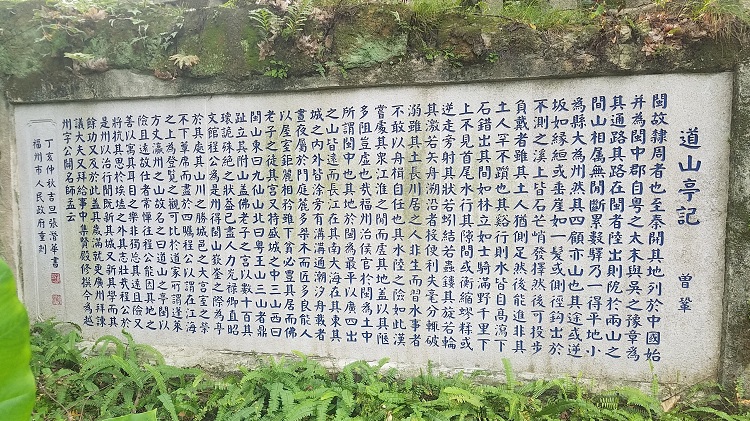 道山亭記
曾鞏
閩故隸周者也至秦開其地列於中國始
并為閩中郡自粤之太末與吳之豫章為
其通路其路在閩者陸出則阸於兩山之
間山相属無間斷累數驛乃一得平地小
為縣大為州然其四顧亦山也其途或逆
坂如緣絙或垂崖如一髮或側徑鈎出於
不測之溪上皆石芒峭發擇然後可投步
負戴者雖其土人猶側足然後能進非其
土人罕不躓也其谿行則水皆自高瀉下
石錯出其間如林立如士騎滿野千里下
上不見首尾水行其隙間或衡縮蟉糅或
逆走旁射其狀若蚓結若蟲鏤其旋若輪
其激若矢舟溯沿者投便利失毫分輒破
溺雖其土長川居之人非生而習水事者
不敢以舟楫自任也其水陸之險如此漢
嘗處其衆江淮之間而虛其地蓋以其陿
多阻豈虛也哉福州治侯官於閩為土中
所謂閩中也其地於閩為最平以廣四出
之山皆遠而長江在其南大海在其東其
城之內外皆涂旁有溝溝通潮汐舟載者
晝夜屬於門庭麓多桀木而匠多良能人
以屋室鉅麗相矜雖下貧必豐其居而佛
老子之徒其宮又特盛城之中三山西曰
閩山東曰九仙山北曰粤王山三山者鼎
趾立其附山蓋佛老子之宮以數十百其
瓌詭殊絕之狀蓋已盡人力光祿卿直昭
文館程公為是州得閩山嶔崟之際為亭
於其處其山川之勝城邑之大宮室之榮
不下簟席而盡於四矚程公以謂在江海
之上為登覽之觀可比於道家所謂蓬萊
方丈瀛州之山故名之曰道山之亭閩以
險且遠故仕者常憚往程公能因其地之
善以寓其耳目之樂非獨忘其遠且險又
將抗其思於埃壒之外其志壯哉程公於
是州以治行聞既新其城又新其學而其
餘功又及於此蓋其歲滿就更廣州拜諫
議大夫又拜給事中集賢殿修撰今為越
州字公闢名師孟云
丁亥仲秋吉旦張華書
福州市人民政府重刻